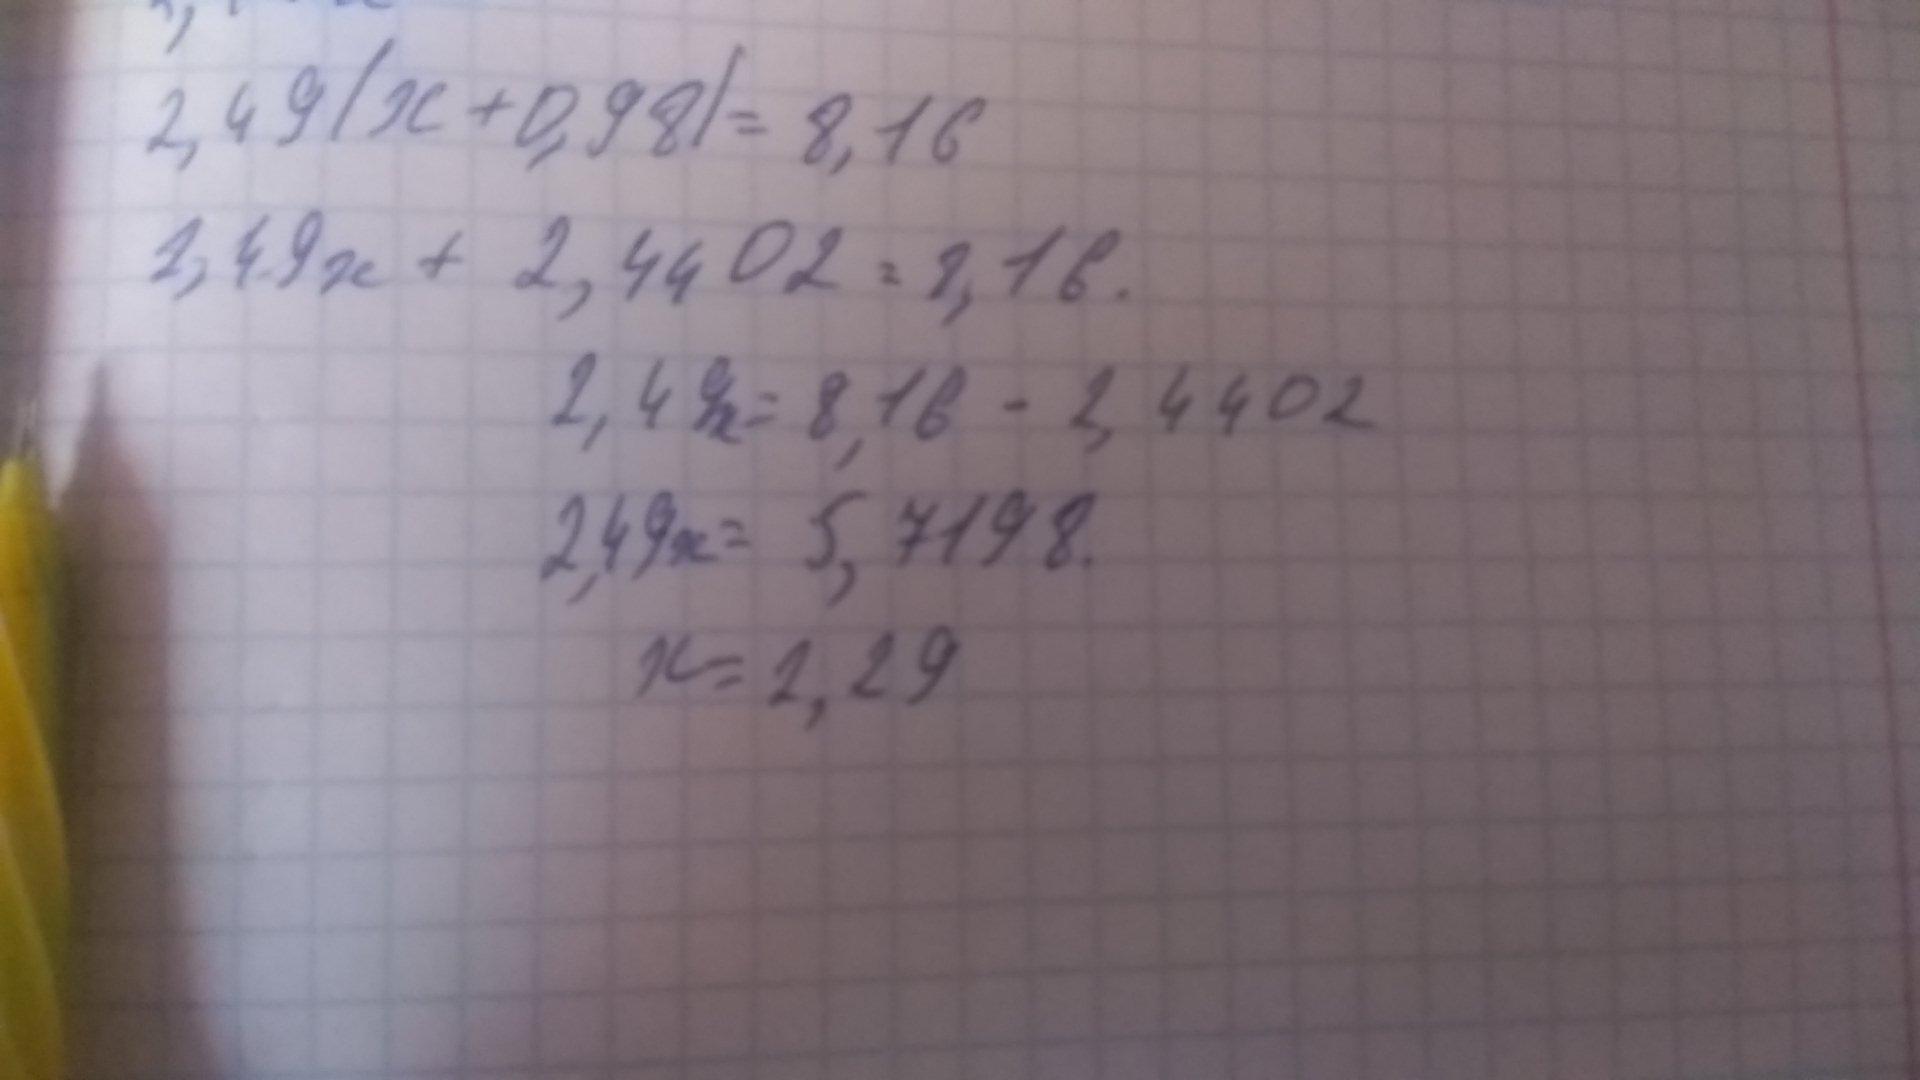 2,49(x+0,98)=8,16
2,49x + 2,4402 = 8,16.
2,49x = 8,16 - 2,4402
2,49x = 5,7198.
x = 2,29